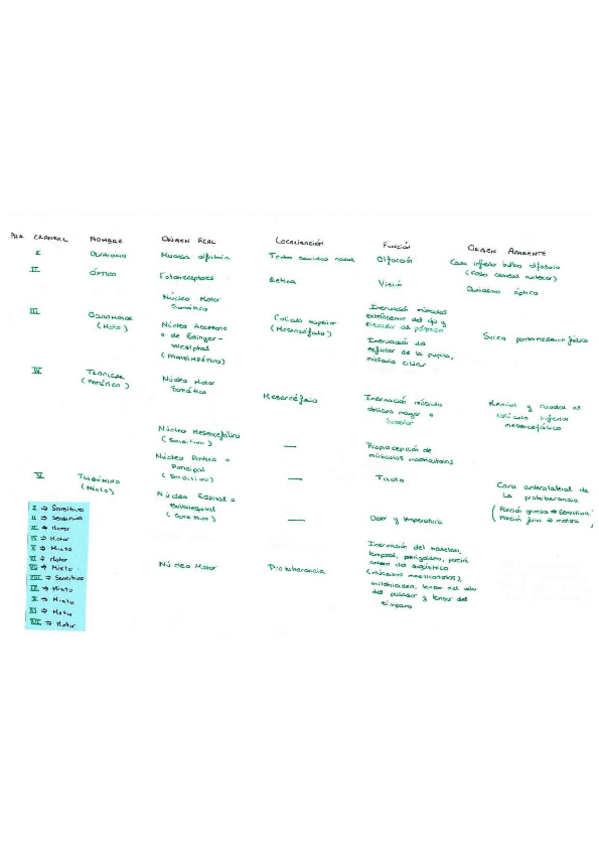 PAR CRANEAL NOMBRE ORIGEN REAL LOCALIZACIÓN FUNCIÓN ORIGEN APARENTE
I OLFATORIO Mucosa olfatoria Techo cavidad nasal Olfacción Cara inferior bulbo olfatorio
II ÓPTICO Fotorreceptores Retina Visión Quiasma óptico
III OCULOMOTOR (Motor)
Núcleo Motor Somático
Núcleo Accesorio o de Edinger-Westphal
Colículo superior (Mesencéfalo)
Inervación músculos extrínsecos del ojo y elevador del párpado
Inervación del esfínter de la pupila, músculo ciliar
IV TROCLEAR
Núcleo Motor Somático
Mesencéfalo
Inervación músculo oblicuo mayor o superior
caudal al colículo inferior mesencefálico
V TRIGÉMINO (Mixto)
Núcleo Mesencefálico (Sensitivo)
—
Propiocepción de músculos masticatorios
Núcleo Pontino o Principal (Sensitivo)
—
Tacto
Núcleo Espinal o (Sensitivo)
—
Dolor y temperatura
Núcleo Motor
Protuberancia
Inervación del masetero, temporal, pterigoideo, porción
(músculos masticatorios), milohioideo, tensor del velo del paladar y tensor del tímpano
Cara anterolateral de la protuberancia
(Porción gruesa → Sensitiva
Porción fina → motora)
I → Sensitivo
II → Sensitivo
III → Motor
IV → Motor
V → Mixto
VI → Motor
VII → Mixto
VIII → Sensitivo
IX → Mixto
X → Mixto
XI → Motor
XII → Motor